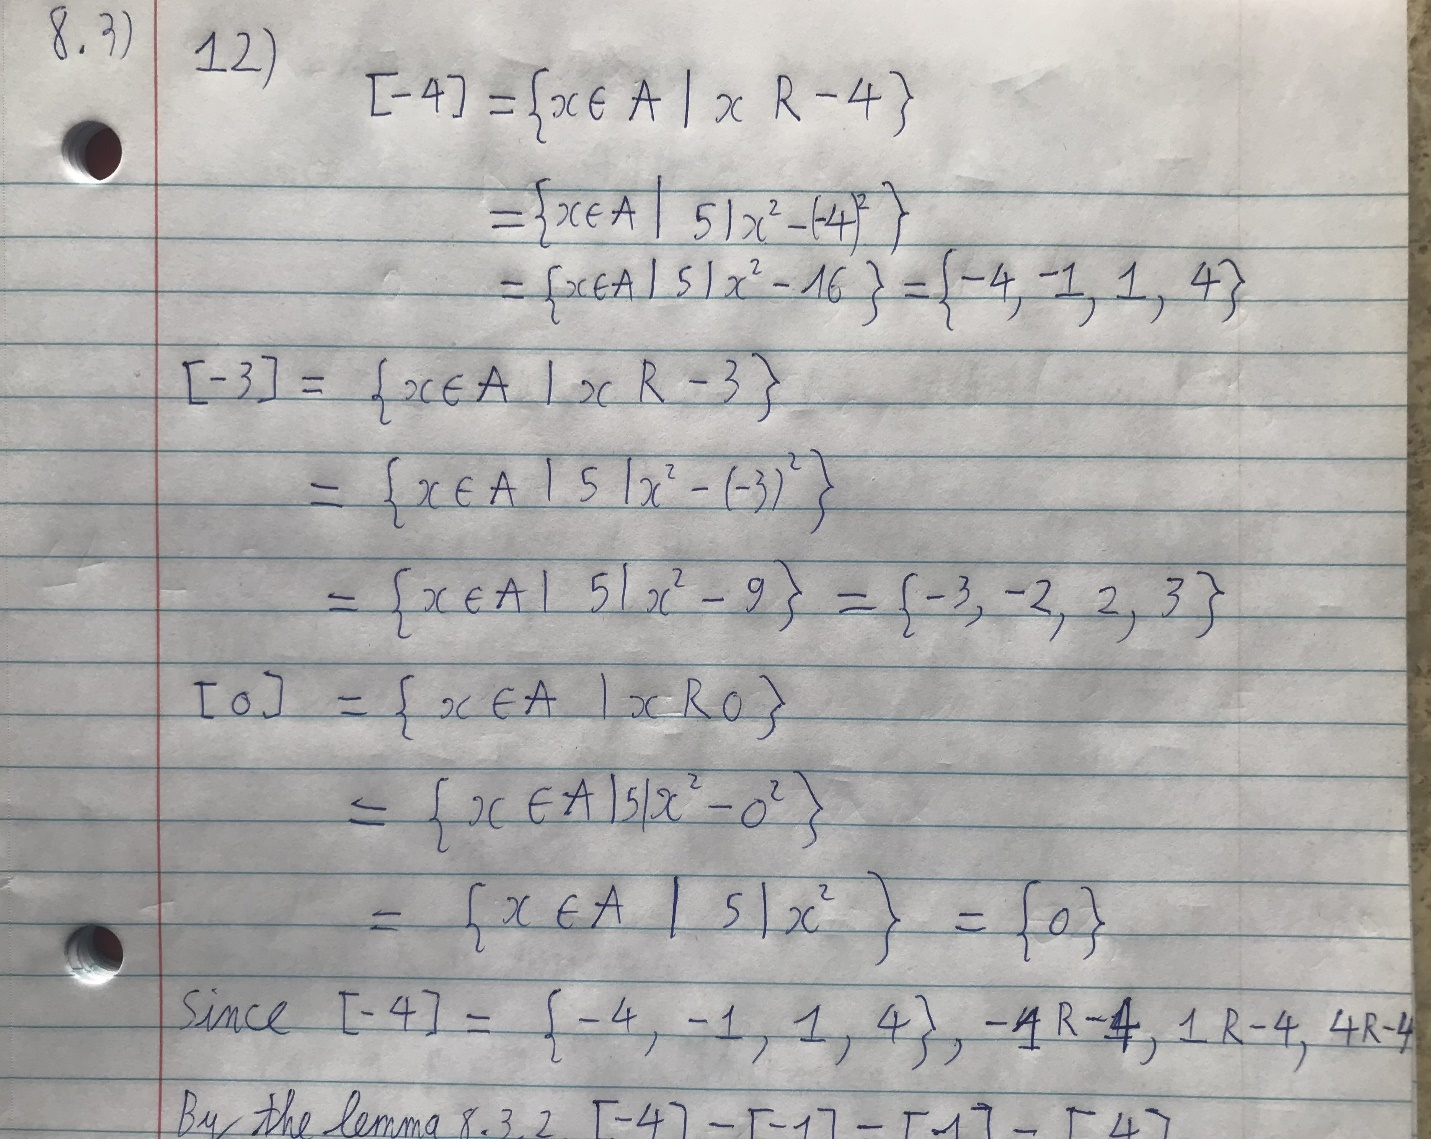 8.3) 12)
[-4] = {x ∈ A | x R -4}
= {x ∈ A | 5 | x² - (-4)²}
= {x ∈ A | 5 | x² - 16} = {-4, -1, 1, 4}
[-3] = {x ∈ A | x R -3}
= {x ∈ A | 5 | x² - (-3)²}
= {x ∈ A | 5 | x² - 9} = {-3, -2, 2, 3}
[0] = {x ∈ A | x R 0}
= {x ∈ A | 5 | x² - 0²}
= {x ∈ A | 5 | x²} = {0}
Since [-4] = {-4, -1, 1, 4}, 1 R -4, 4 R -4
By the lemma 8.3.2 [-4] = [-1] = [1] = [4]